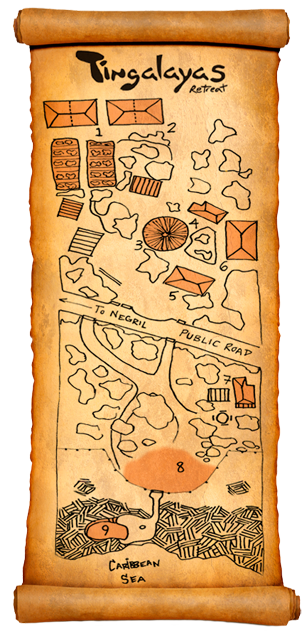 Tingalayas
Retreat
1
2
3
4
5
6
TO NEGRIL
PUBLIC ROAD
7
8
9
CARIBBEAN
SEA